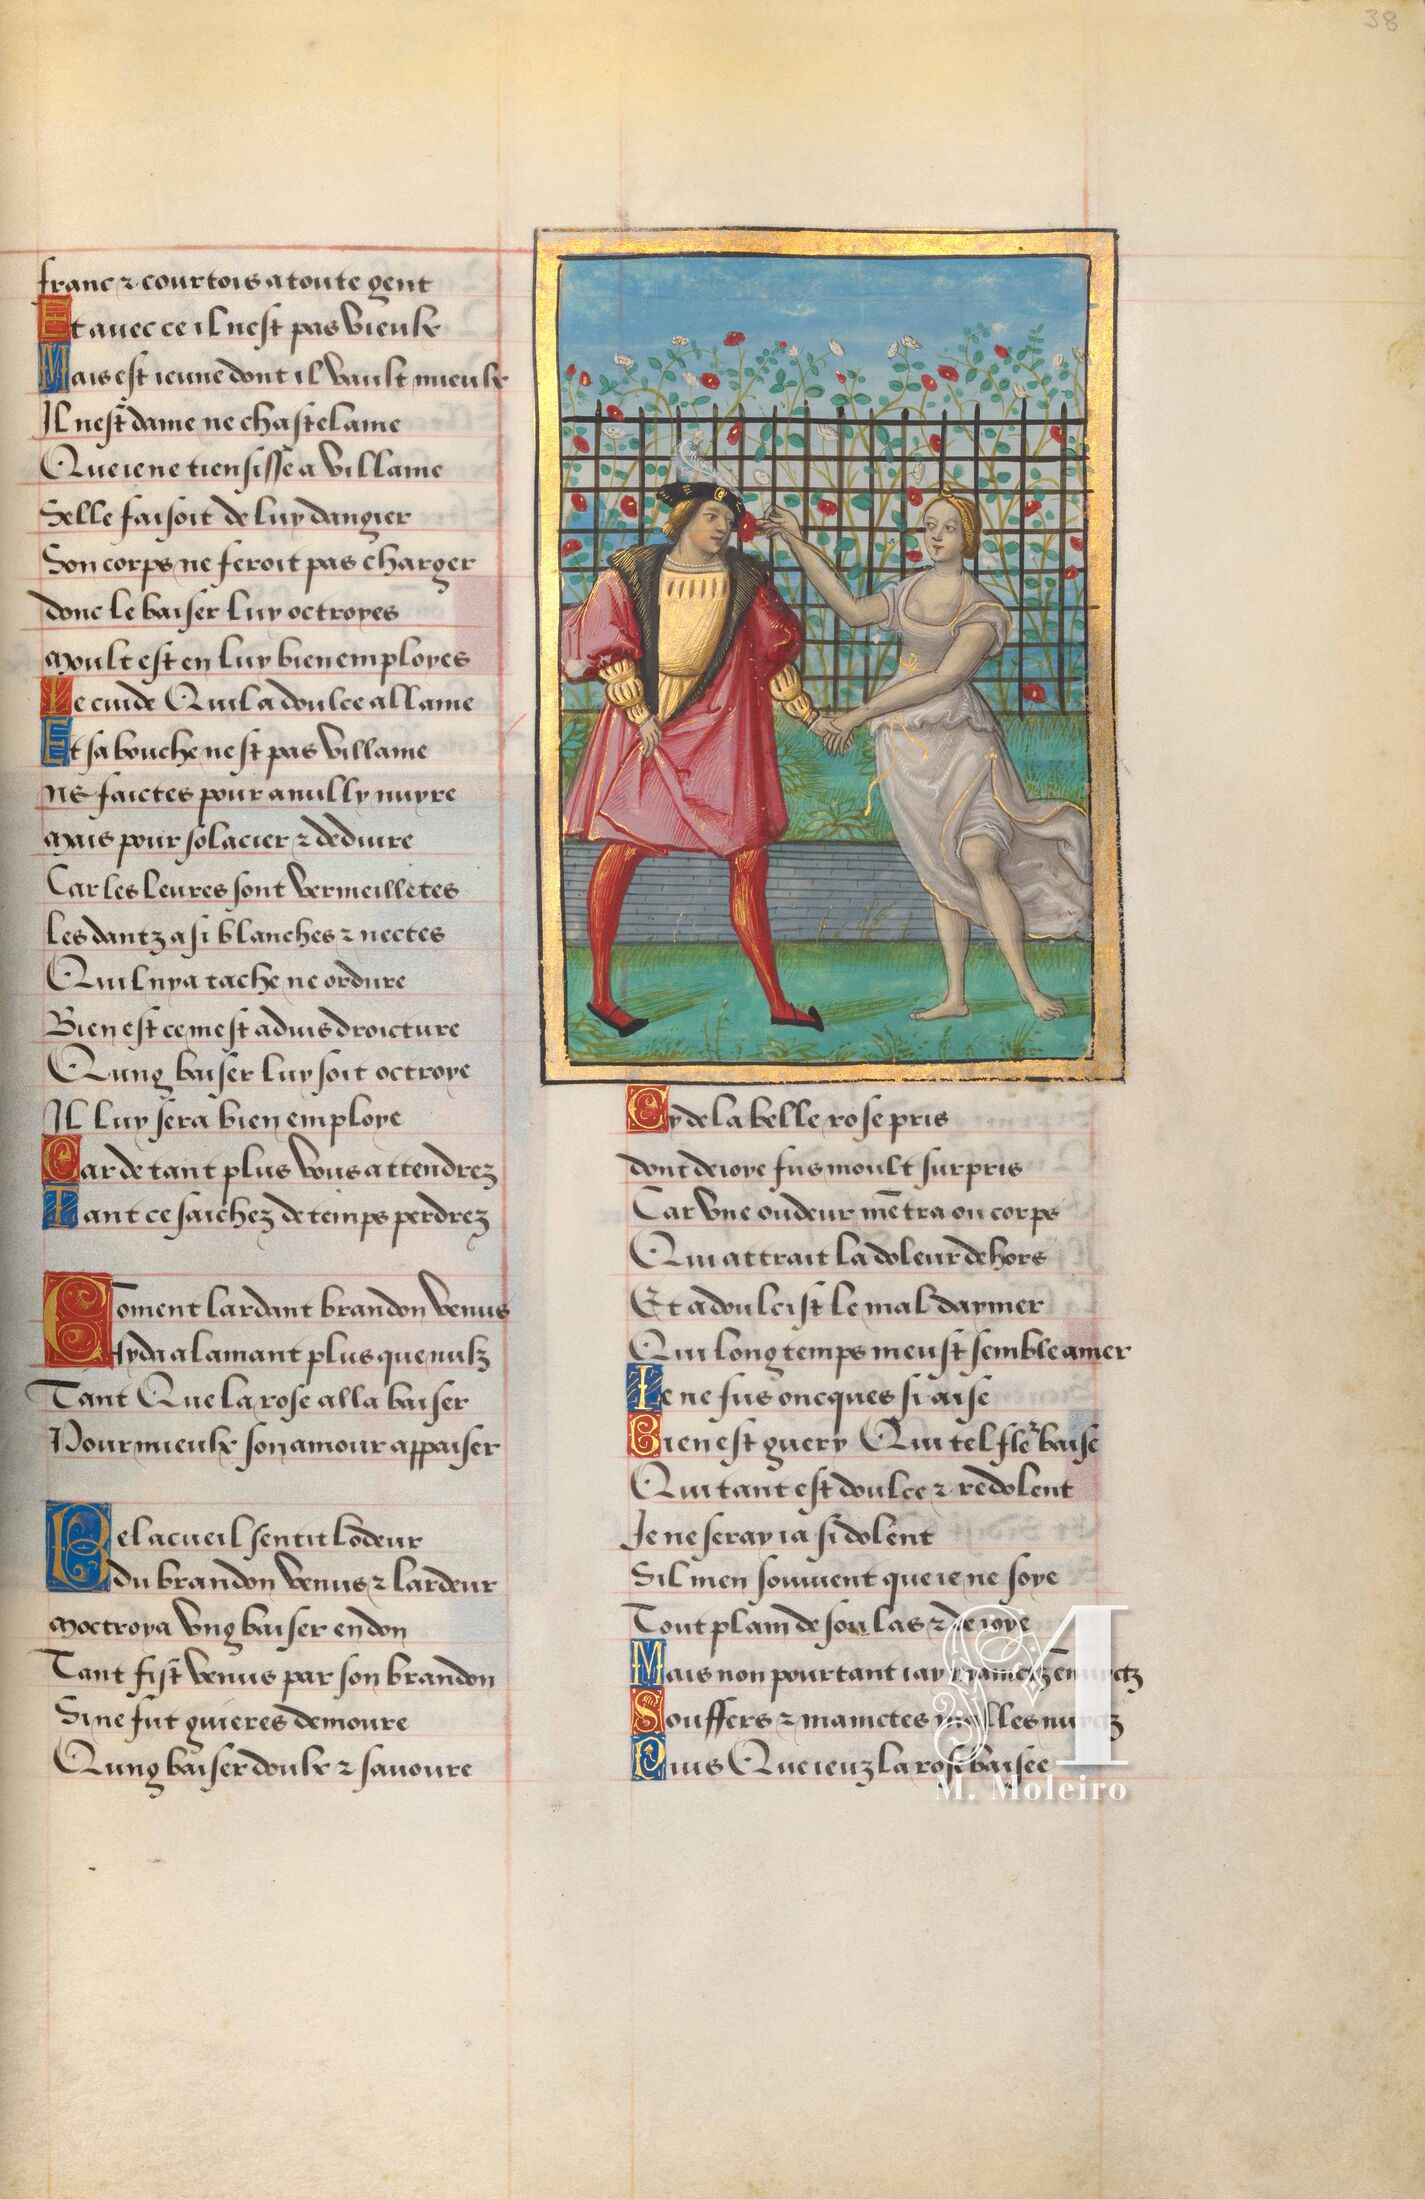 38
franc ⁊ courtois a toute gent
Et avec ce il nest pas vieulx
Mais est ieune dont il vault mieulx
Il nest dame ne chastelaine
Que ie ne tiensisse a villaine
Selle faisoit de luy dangier
Son corps ne feroit pas charger
donc le baiser luy octroyes
Moult est en luy bien employes
Ie cuide Quil a doulce allaine
Et sa bouche nest pas villaine
ne faictes pour a nully nuyre
Mais pour solacier ⁊ deduire
Car les levres sont vermeilletes
Les dantz a si blanches ⁊ nectes
Quil ny a tache ne ordure
Bien est ce mest aduis droicture
Qung baiser luy soit octroye
Il luy sera bien employe
Car de tant plus vous attendrez
Tant ce saichez de temps perdrez
Coment lardant brandon venus
Ayda a lamant plus que nulz
Tant Que la rose alla baiser
Pour mieulx son amour appaiser
Bel acueil sentit lodeur
du brandon venus ⁊ lardeur
Moctroya ung baiser en don
Tant fist venus par son brandon
Si ne fut guieres demoure
Qung baiser doulx ⁊ savoure
Cy de la belle rose pris
dont de ioye fus moult surpris
Car une oudeur mētra ou corps
Qui attrait la doleur dehors
Et adoulcist le mal daymer
Qui long temps meust semble amer
Ie ne fus oncques si aise
Bien est guery Qui tel fleᵘʳ baise
Qui tant est doulce ⁊ redolent
Je ne seray ia si dolent
Sil men souvient que ie ne soye
Tout plain de soulas ⁊ de ioye
Mais non pourtant iay mainctz ennuyctz
Souffers ⁊ mainctes males nuyctz
Puis Que ieuz la rose baisee
M. Moleiro